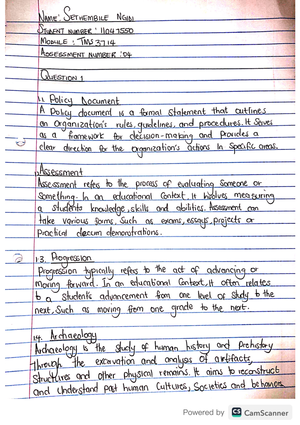 NAME: SETHEMBILE NGIDI
STUDENT NUMBER: 11047550
MODULE: TMS3714
ASSESSMENT NUMBER: 04
QUESTION 1
1.1. Policy Document
A Policy document is a formal statement that outlines
an Organization's rules, guidelines, and procedures. It Serves
as a framework for decision-making and Provides a
clear direction for the organization's actions in Specific areas.
Assessment
Assessment refers to the process of evaluating Someone or
Something. In an educational Context, it involves measuring
a students knowledge, skills and abilities. Assessment can
take various forms, Such as exams, essays, projects or
Practical demonstrations.
1.3. Progression
Progression typically refers to the act of advancing or
moving forward. In an educational Context, it often relates
to a Students advancement from one level of Study to the
next, Such as moving from one grade to the next.
1.4. Archaeology
Archaeology is the study of human history and Prehistory
through the excavation and analysis of artifacts,
Structures and other physical remains. It aims to reconstruct
and Understand past human Cultures, Societies and behaviors
Powered by CS CamScanner